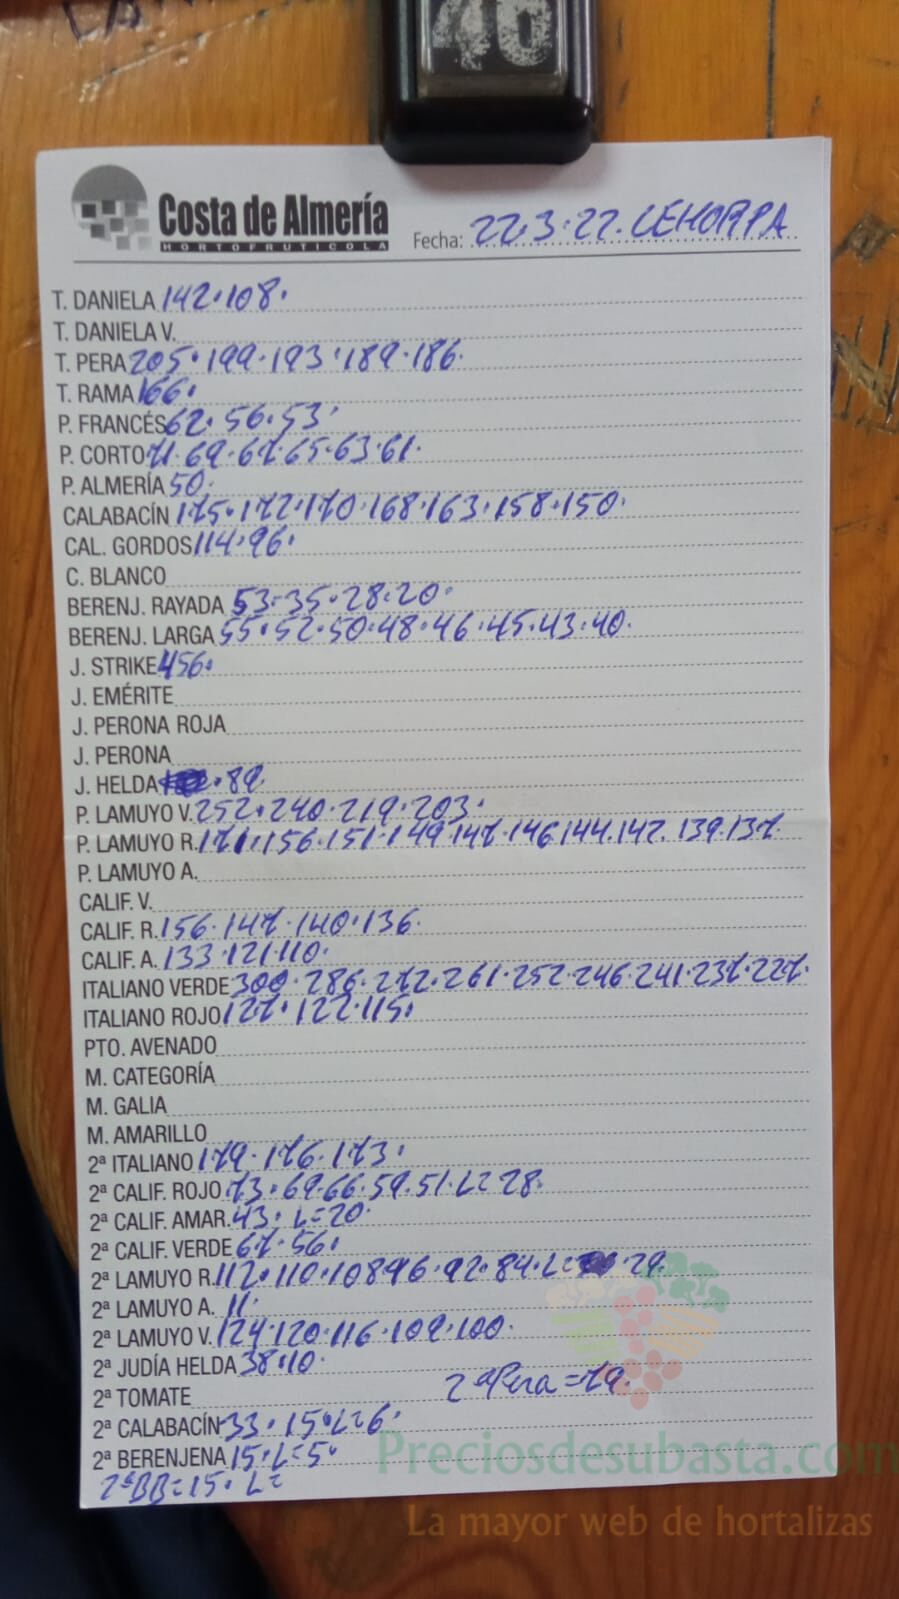 46
Costa de Almería
HORTOFRUTICOLA
Fecha: 22.3.22. CEHORPA
T. DANIELA 142.108.
T. DANIELA V.
T. PERA 205.199.193.189.186.
T. RAMA 166.
P. FRANCÉS 62.56.53.
P. CORTO 71.69.67.65.63.61.
P. ALMERÍA 50.
CALABACÍN 175.172.170.168.163.158.150.
CAL. GORDOS 114.96.
C. BLANCO
BERENJ. RAYADA 53.35.28.20.
BERENJ. LARGA 55.52.50.48.46.45.43.40.
J. STRIKE 456.
J. EMÉRITE
J. PERONA ROJA
J. PERONA
J. HELDA .89.
P. LAMUYO V. 252.240.219.203.
P. LAMUYO R. 171.156.151.149.147.146.144.142.139.137.
P. LAMUYO A.
CALIF. V.
CALIF. R. 156.147.140.136.
CALIF. A. 133.121.110.
ITALIANO VERDE 300.286.272.261.252.246.241.237.227.
ITALIANO ROJO 127.122.115.
PTO. AVENADO
M. CATEGORÍA
M. GALIA
M. AMARILLO
2ª ITALIANO 179.176.173.
2ª CALIF. ROJO 73.69.66.59.51.L=28.
2ª CALIF. AMAR. 43.L=20.
2ª CALIF. VERDE 67.56.
2ª LAMUYO R. 112.110.108.96.92.84.L= .29.
2ª LAMUYO A. 11.
2ª LAMUYO V. 124.120.116.109.100.
2ª JUDÍA HELDA 38.10.
2ª TOMATE 2ª Pera=79.
2ª CALABACÍN 33.15.L=6.
2ª BERENJENA 15.L=5.
2ªBB=15.L=
Preciosdesubasta.com
La mayor web de hortalizas